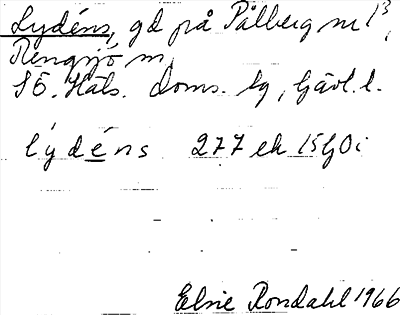 Lydéns, gd på Pålberg nr 1³,
Rengsjö sn,
SÖ. Häls. Doms. lg, Gävl. l.
lydéns 277 ek 15G0i
Elsie Rondahl 1966